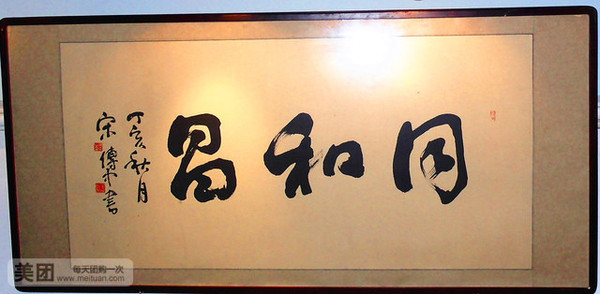 同和昌
丁亥秋月
宋傳書
美团
每天团购一次
www.meituan.com